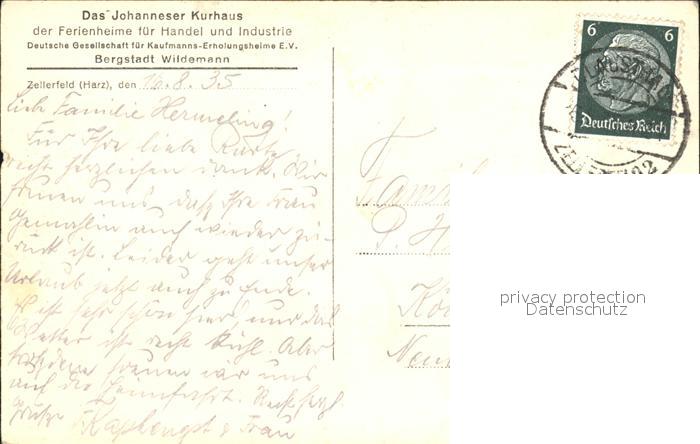 Das Johanneser Kurhaus
der Ferienheime für Handel und Industrie
Deutsche Gesellschaft für Kaufmanns-Erholungsheime E.V.
Bergstadt Wildemann
Zellerfeld (Harz), den 16.8.35
Liebe Familie Hermeling!
Für Ihre liebe Karte
recht herzlichen Dank. Wir
freuen uns, daß Ihre Frau
Gemahlin auch wieder zu-
rück ist. Leider geht unser
Urlaub jetzt auch zu Ende.
Es ist sehr schön hier, nur das
Wetter ist recht kühl. Aber
trotzdem freuen wir uns
auf die Heimfahrt. Recht herzl.
Grüße Kaphengst & Frau
6 6
Deutsches Reich
Fami
P. H
Kö
privacy protection
Datenschutz